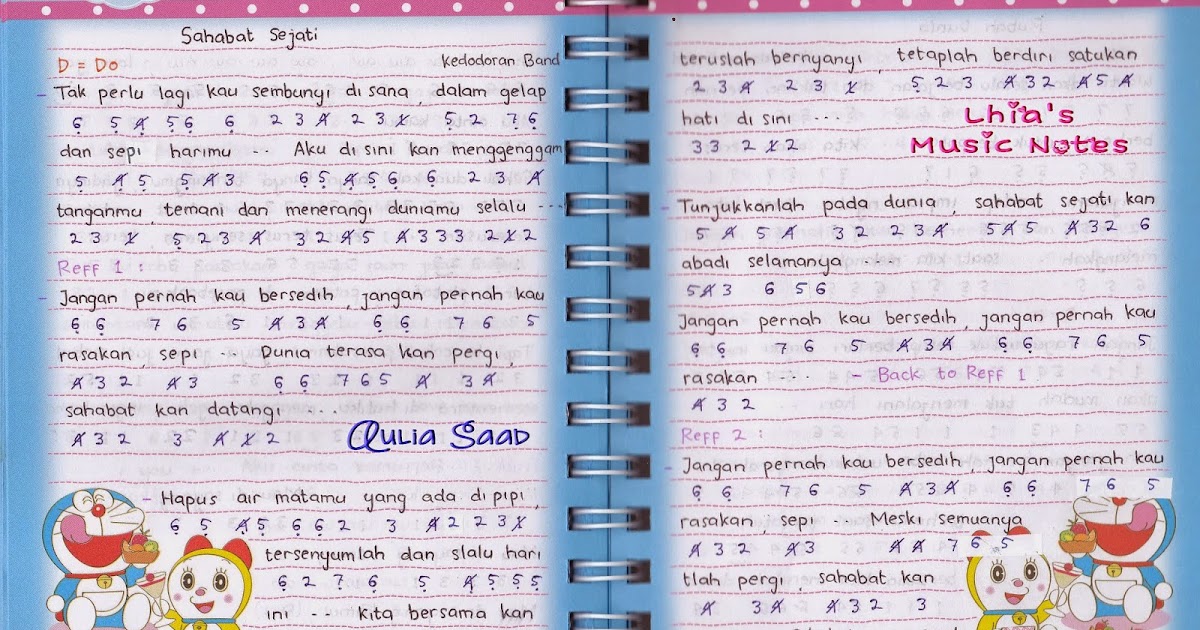 Sahabat Sejati
D = Do kedodoran Band
- Tak perlu lagi kau sembunyi di sana, dalam gelap
6 5 4 56 6 2 3 4 2 3 1 5 2 76
dan sepi harimu ... Aku di sini kan menggenggam
5 45 543 65 456 6 2 3 4
tanganmu temani dan menerangi duniamu selalu ...
2 3 1 5 2 3 4 3 2 4 5 4 3 3 3 2 1 2
Reff 1 :
- Jangan pernah kau bersedih, jangan pernah kau
6 6 7 6 5 4 3 4 6 6 7 6 5
rasakan, sepi ... Dunia terasa kan pergi,
4 3 2 4 3 6 6 7 6 5 4 3 4
sahabat kan datangi ...
4 3 2 3 4 1 2
Aulia Saad
- Hapus air matamu yang ada di pipi,
6 5 45 6 6 2 3 4 2 2 3 1
tersenyumlah dan slalu hari
6 2 7 6 5 4 5 5 5
ini ... kita bersama kan
teruslah bernyanyi, tetaplah berdiri satukan
2 3 4 2 3 1 5 2 3 4 3 2 4 5 4
hati di sini ...
3 3 2 1 2
Lhia's
Music Notes
- Tunjukkanlah pada dunia, sahabat sejati kan
5 4 5 4 3 2 2 3 4 5 4 5 4 3 2 6
abadi selamanya
5 4 3 6 5 6
Jangan pernah kau bersedih, jangan pernah kau
6 6 7 6 5 4 3 4 6 6 7 6 5
rasakan ... - Back to Reff 1
4 3 2
Reff 2 :
- Jangan pernah kau bersedih, jangan pernah kau
6 6 7 6 5 4 3 4 6 6 7 6 5
rasakan, sepi ... Meski semuanya
4 3 2 4 3 4 4 7 6 5
tlah pergi, sahabat kan
4 3 4 4 3 2 3